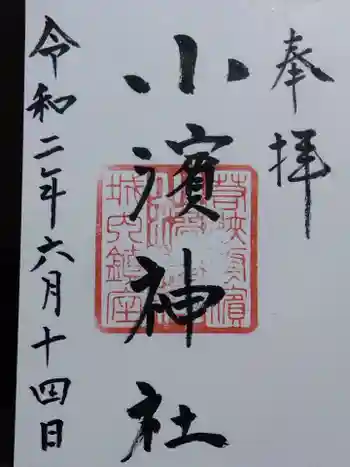 奉拝
小濱神社
令和二年六月十四日